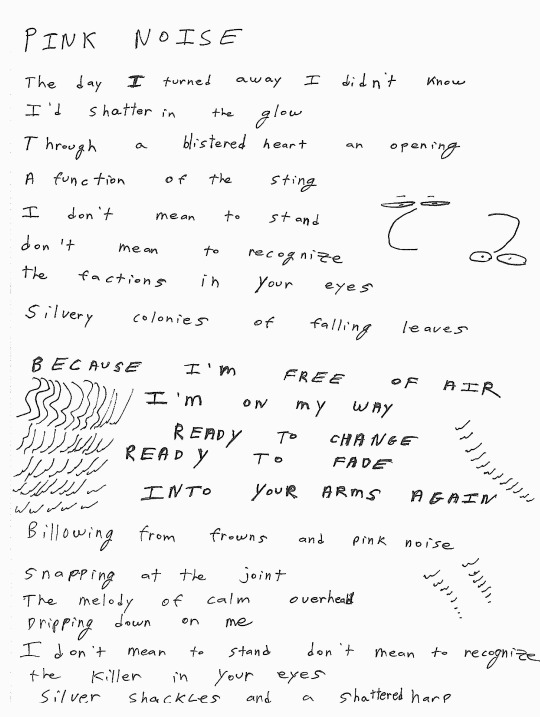 PINK NOISE
The day I turned away I didn't know
I'd shatter in the glow
Through a blistered heart an opening
A function of the sting
I don't mean to stand
don't mean to recognize
the factions in your eyes
Silvery colonies of falling leaves
BECAUSE I'm FREE OF AIR
I'm ON my WAY
READY TO CHANGE
READY TO FADE
INTO YOUR ARMS AGAIN
Billowing from frowns and pink noise
Snapping at the joint
The melody of calm overhead
Dripping down on me
I don't mean to stand don't mean to recognize
the killer in your eyes
Silver shackles and a shattered harp